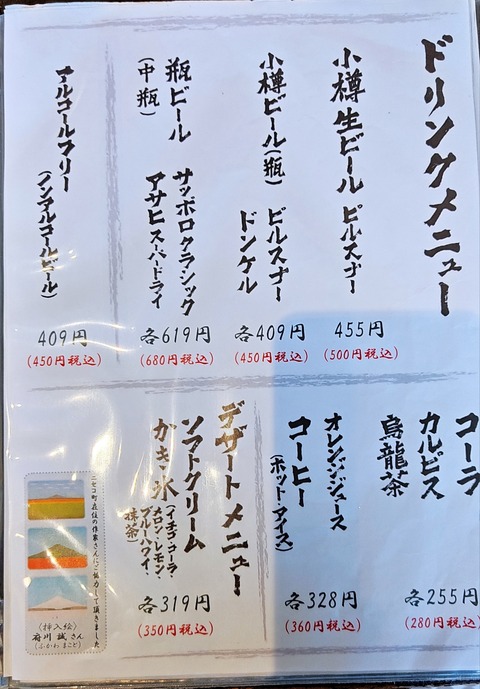 ドリンクメニュー
小樽生ビール ピルスナー
455円
(500円税込)
小樽ビール(瓶)
ピルスナー
ドンケル
各409円
(450円税込)
瓶ビール
(中瓶)
サッポロクラシック
アサヒスーパードライ
各619円
(680円税込)
アルコールフリー
(ノンアルコールビール)
409円
(450円税込)
コーラ
カルピス
烏龍茶
各255円
(280円税込)
オレンジジュース
コーヒー
(ホット・アイス)
各328円
(360円税込)
デザートメニュー
ソフトクリーム
かき氷
(イチゴ・コーラ・
メロン・レモン・
ブルーハワイ・
抹茶)
各319円
(350円税込)
ニセコ町在住の作家さんにご協力して頂きました
〈挿入絵〉
府川 誠さん
(ふかわ まこと)